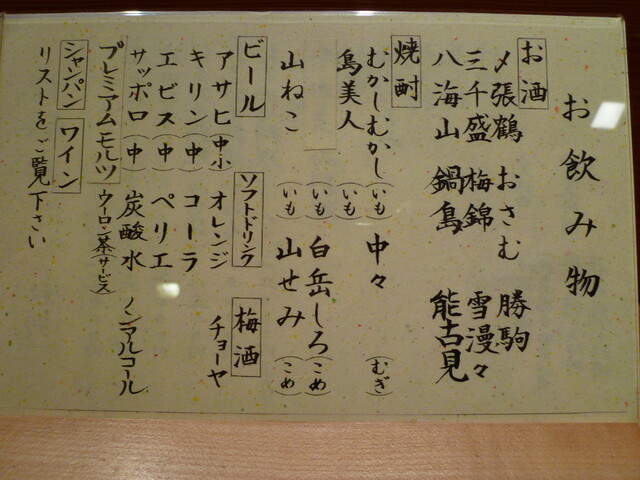 お飲み物
お酒
〆張鶴 おさむ 勝駒
三千盛 梅錦 雪漫々
八海山 鍋島 能古見
焼酎
むかしむかし(いも) 中々(むぎ)
島美人(いも)
(いも) 白岳しろ(こめ)
山ねこ(いも) 山せみ(こめ)
ビール ソフトドリンク 梅酒
アサヒ(中小) オレンジ チョーヤ
キリン(中) コーラ
エビス(中) ペリエ
サッポロ(中) 炭酸水 ノンアルコール
プレミアムモルツ ウーロン茶(サービス)
シャンパン ワイン
リストをご覧下さい